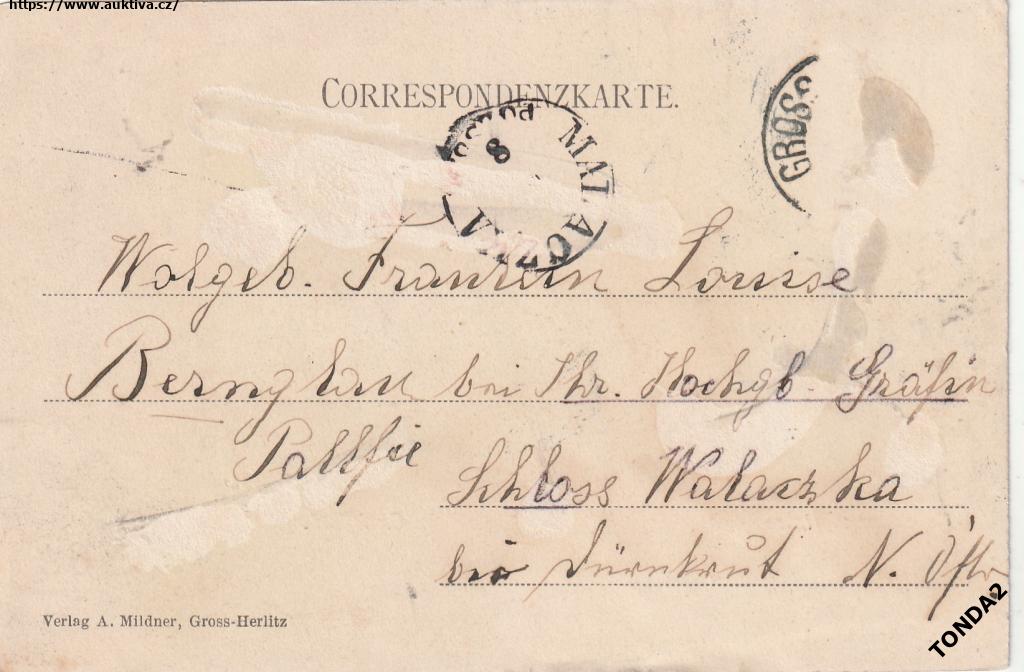 https://www.auktiva.cz/
CORRESPONDENZKARTE.
POZSO
8
MALACZKA
GROSS
Wolgeb. Fraulein Louise
Bernglau bei Ihr. Hochgb. Gräfin
Pallfie
Schloss Walaczka
bei Dürnkrut N. Östr
Verlag A. Mildner, Gross-Herlitz
TONDA2